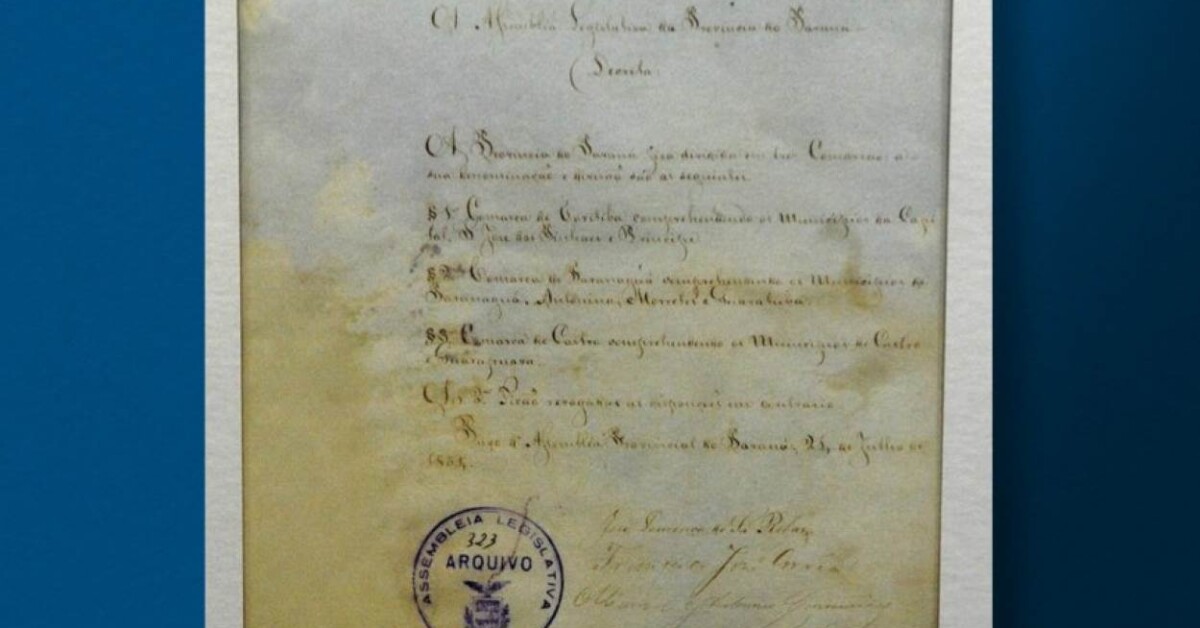 A Assembléa Legislativa da Provincia do Paraná
Decreta:
A Provincia do Paraná fica dividida em tres Comarcas, a
sua denominação e divisão são as seguintes.
§ 1º Comarca de Coritiba comprehendendo os Municipios da Capi
tal, S. José dos Pinhaes e Principe
§ 2º Comarca de Paranaguá comprehendendo os Municipios de
Paranaguá, Antonina, Morretes e Guaratuba.
§ 3º Comarca de Castro comprehendendo os Municipios de Castro
e Guarapuava.
Art. 2º Ficão revogadas as disposições em contrario
Paço d'Assembléa Provincial do Paraná, 21 de Julho de
1854.
ASSEMBLEIA LEGISLATIVA
323
ARQUIVO
José Lourenço de Sá Ribas
Francisco José Correia
Manoel Antonio